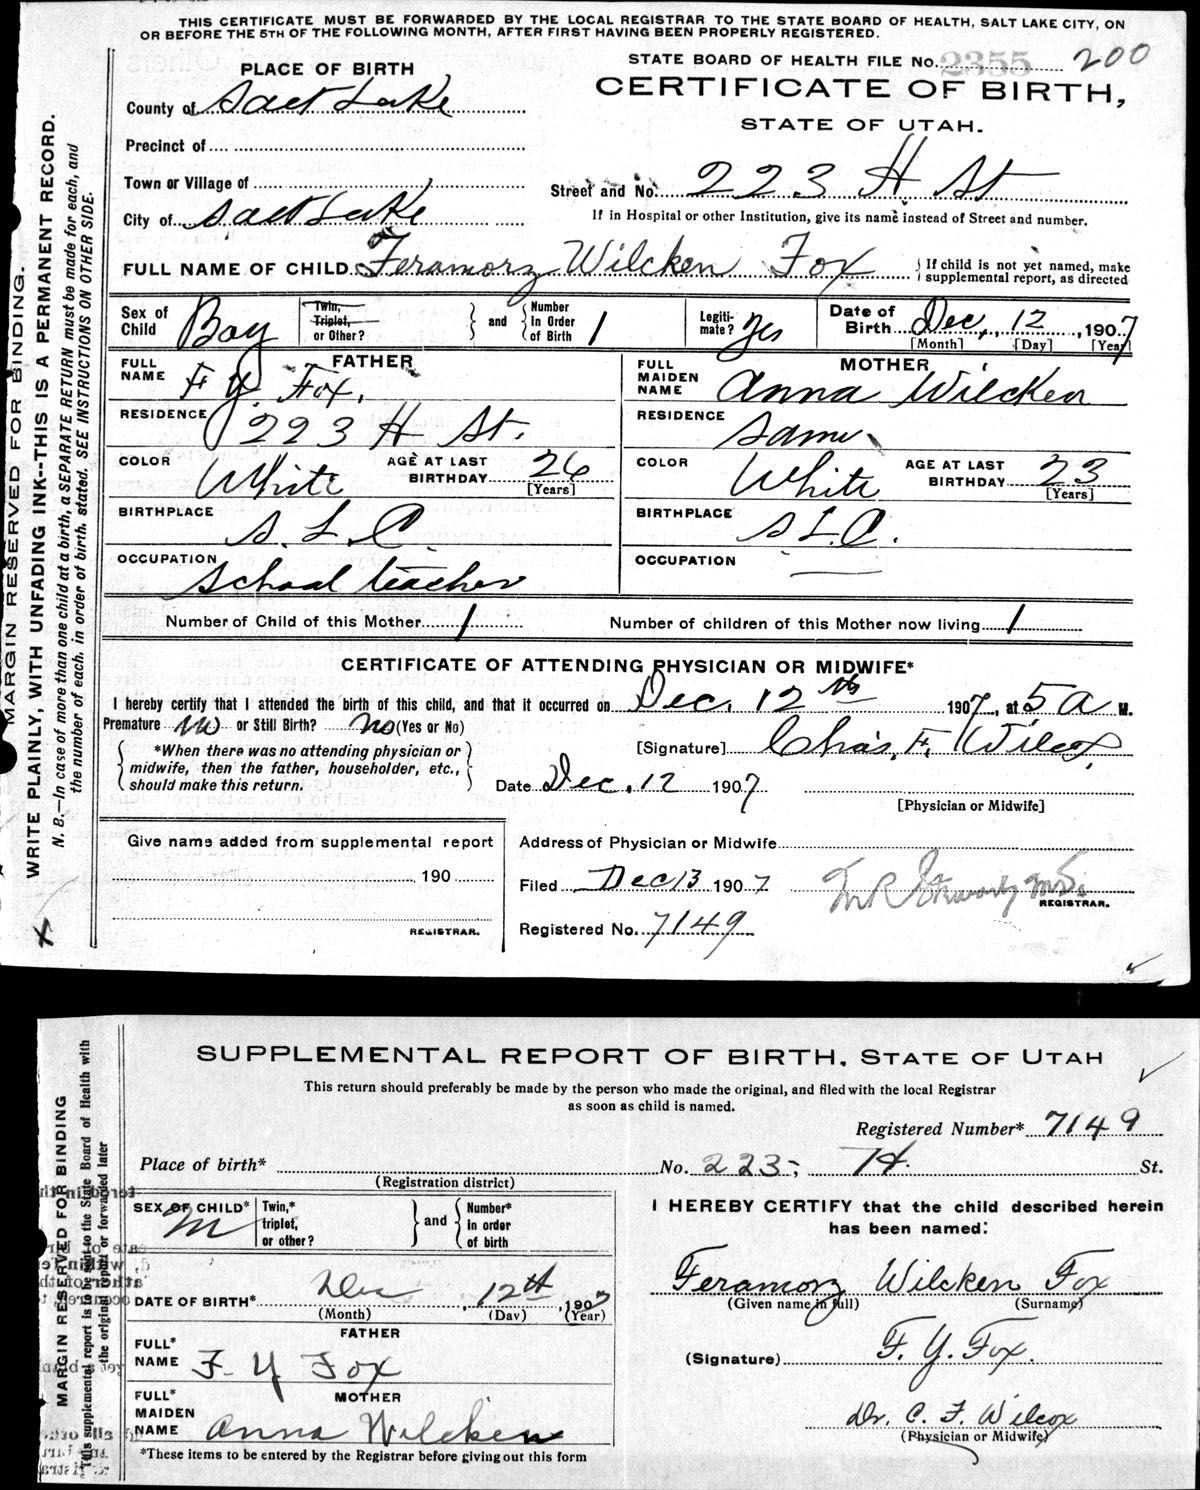 THIS CERTIFICATE MUST BE FORWARDED BY THE LOCAL REGISTRAR TO THE STATE BOARD OF HEALTH, SALT LAKE CITY, ON
OR BEFORE THE 5TH OF THE FOLLOWING MONTH, AFTER FIRST HAVING BEEN PROPERLY REGISTERED.
STATE BOARD OF HEALTH FILE No. 2355 200
PLACE OF BIRTH
CERTIFICATE OF BIRTH,
STATE OF UTAH.
County of Salt Lake
Precinct of
Town or Village of
Street and No. 223 H St
City of Salt Lake
If in Hospital or other Institution, give its name instead of Street and number.
FULL NAME OF CHILD Feramorz Wilcken Fox
If child is not yet named, make
supplemental report, as directed
Sex of Child Boy
Twin, Triplet, or Other?
and
Number in Order of Birth 1
Legiti-mate? Yes
Date of Birth Dec, 12, 1907
[Month] [Day] [Year]
FATHER
FULL NAME F. Y. Fox.
MOTHER
FULL MAIDEN NAME Anna Wilcken
RESIDENCE 223 H St.
RESIDENCE Same
COLOR White
AGE AT LAST BIRTHDAY 26
[Years]
COLOR White
AGE AT LAST BIRTHDAY 23
[Years]
BIRTHPLACE S. L. C.
BIRTHPLACE S L C.
OCCUPATION School teacher
OCCUPATION —
Number of Child of this Mother 1
Number of children of this Mother now living 1
CERTIFICATE OF ATTENDING PHYSICIAN OR MIDWIFE*
I hereby certify that I attended the birth of this child, and that it occurred on Dec. 12th 1907, at 5 a M.
Premature no or Still Birth? no (Yes or No)
*When there was no attending physician or
midwife, then the father, householder, etc.,
should make this return.
[Signature] Chas. F. Wilcox
Date Dec. 12 1907
[Physician or Midwife]
Give name added from supplemental report
190
REGISTRAR.
Address of Physician or Midwife
Filed Dec 13 1907
M.D.
REGISTRAR.
Registered No. 7149
MARGIN RESERVED FOR BINDING.
WRITE PLAINLY, WITH UNFADING INK--THIS IS A PERMANENT RECORD.
N. B.—In case of more than one child at a birth, a SEPARATE RETURN must be made for each, and
the number of each, in order of birth, stated. SEE INSTRUCTIONS ON OTHER SIDE.
SUPPLEMENTAL REPORT OF BIRTH, STATE OF UTAH
This return should preferably be made by the person who made the original, and filed with the local Registrar
as soon as child is named.
Registered Number* 7149
Place of birth* No. 223, H. St.
(Registration district)
SEX OF CHILD* M
Twin,* triplet, or other?
and
Number* in order of birth
DATE OF BIRTH* Dec 12th, 1907
(Month) (Day) (Year)
FATHER
FULL* NAME F. Y Fox
MOTHER
FULL* MAIDEN NAME Anna Wilcken
*These items to be entered by the Registrar before giving out this form
I HEREBY CERTIFY that the child described herein
has been named:
Feramorz Wilcken Fox
(Given name in full) (Surname)
(Signature) F. Y. Fox.
Dr. C. F. Wilcox
(Physician or Midwife)
MARGIN RESERVED FOR BINDING
This supplemental report is to be sent to the State Board of Health with
the original report or forwarded later